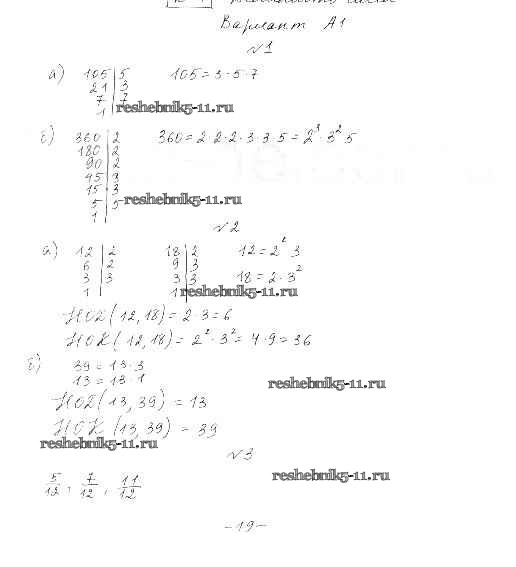 Вариант А1
№1
а) 105 | 5 105 = 3·5·7
21 | 3
7 | 7
1 | reshebnik5-11.ru
б) 360 | 2 360 = 2·2·2·3·3·5 = 2³·3²·5
180 | 2
90 | 2
45 | 3
15 | 3
5 | 5 reshebnik5-11.ru
1 |
№2
а) 12 | 2 18 | 2 12 = 2²·3
6 | 2 9 | 3
3 | 3 3 | 3 18 = 2·3²
1 | 1 | reshebnik5-11.ru
НОД(12,18) = 2·3 = 6
НОК(12,18) = 2²·3² = 4·9 = 36
б) 39 = 13·3
13 = 13·1
reshebnik5-11.ru
НОД(13,39) = 13
НОК(13,39) = 39
reshebnik5-11.ru
№3
reshebnik5-11.ru
5/12, 7/12, 11/12
-19-